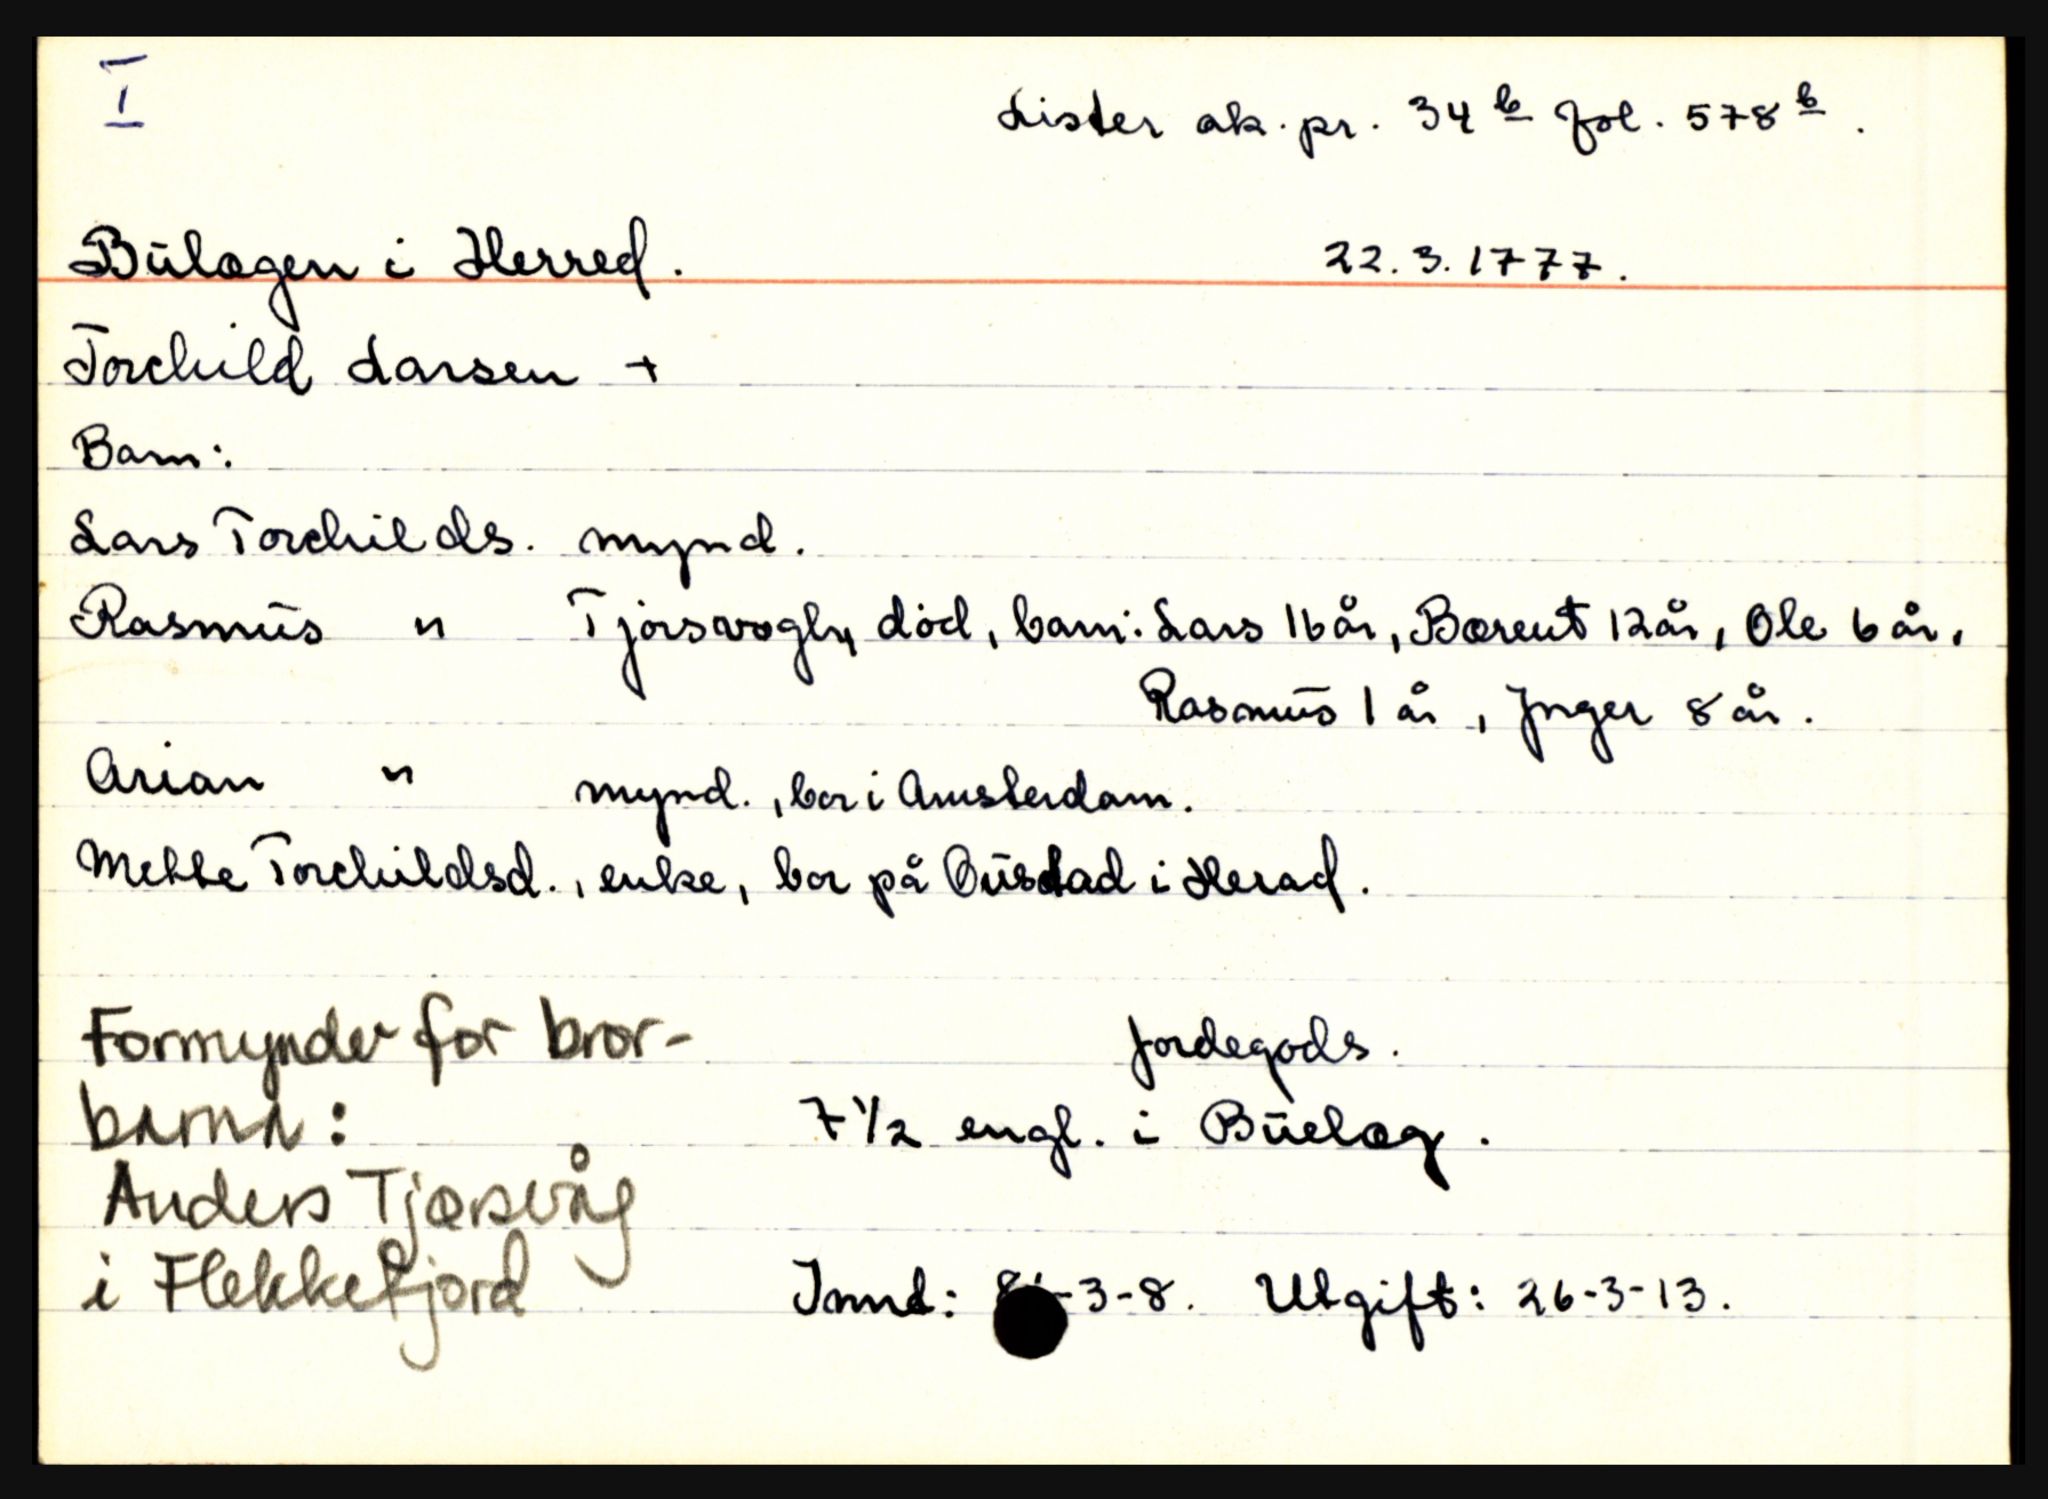 I
Lister sk. pr. 34 b fol. 578 b.
Bŭlagen i Herred. 22.3.1777.
Torchild Larsen +
Barn:
Lars Torchilds. mynd.
Rasmŭs " Tjorsvogh, død, barn: Lars 16 år, Barent 12 år, Ole 6 år,
Rasmŭs 1 år, Jnger 8 år.
Arian " mynd., bor i Amsterdam.
Mette Torchildsd., enke, bor på Ŏŭstad i Herad.
Formynder for bror-
barna:
Anders Tjørsvåg
i Flekkefjord
Jordegods.
7 1/2 engl. i Bŭelag.
Innt: -3-8. Utgift: 26-3-13.